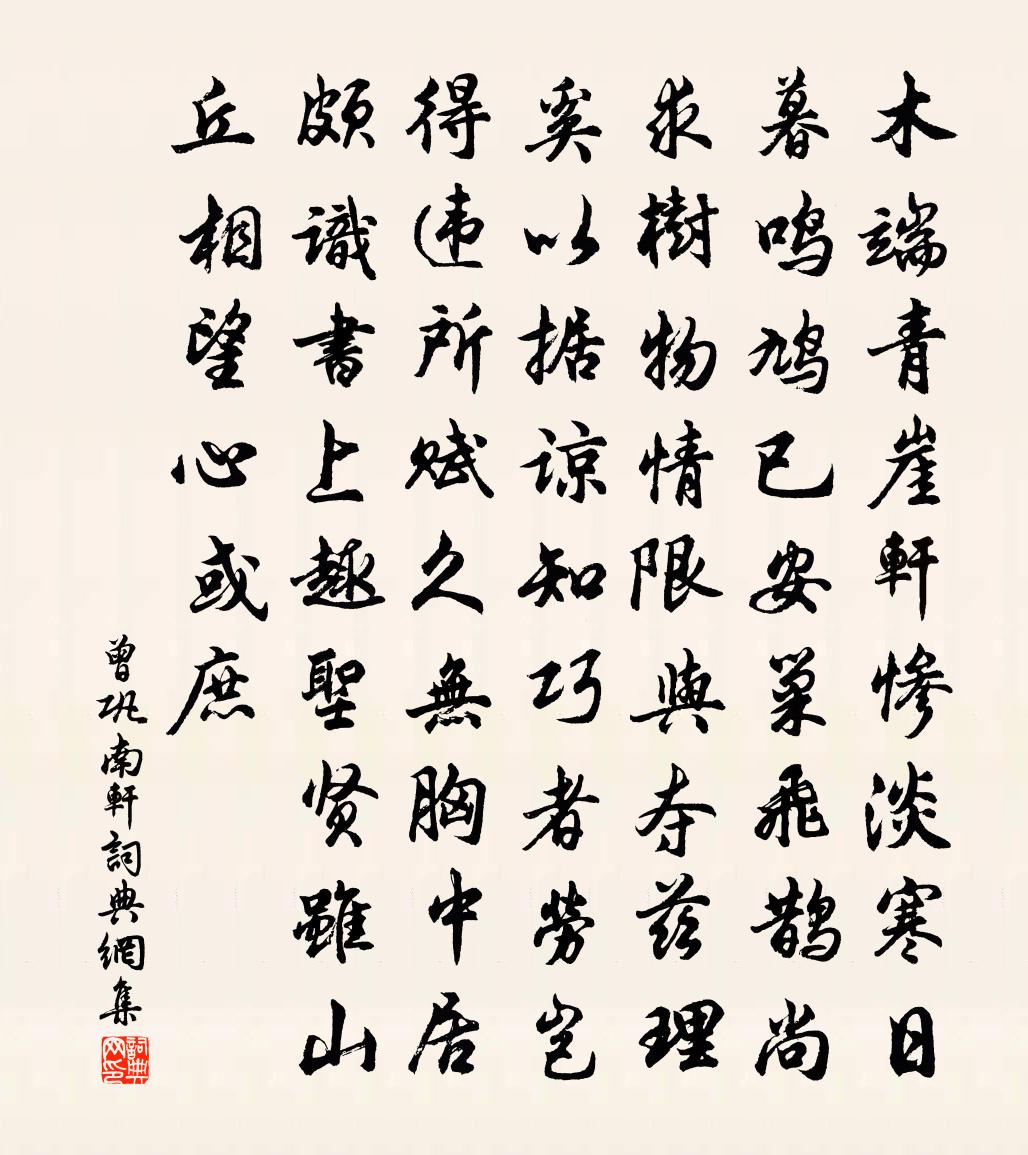 木端青崖軒惨淡寒日
暮鸣鸠已安巢飛鹊尚
求樹物情限與夺兹理
奚以据諒知巧者勞岂
得违所赋久無胸中居
頗識書上趣聖贤雖山
丘相望心或庶
曾巩南軒詞典網集
詞典网印